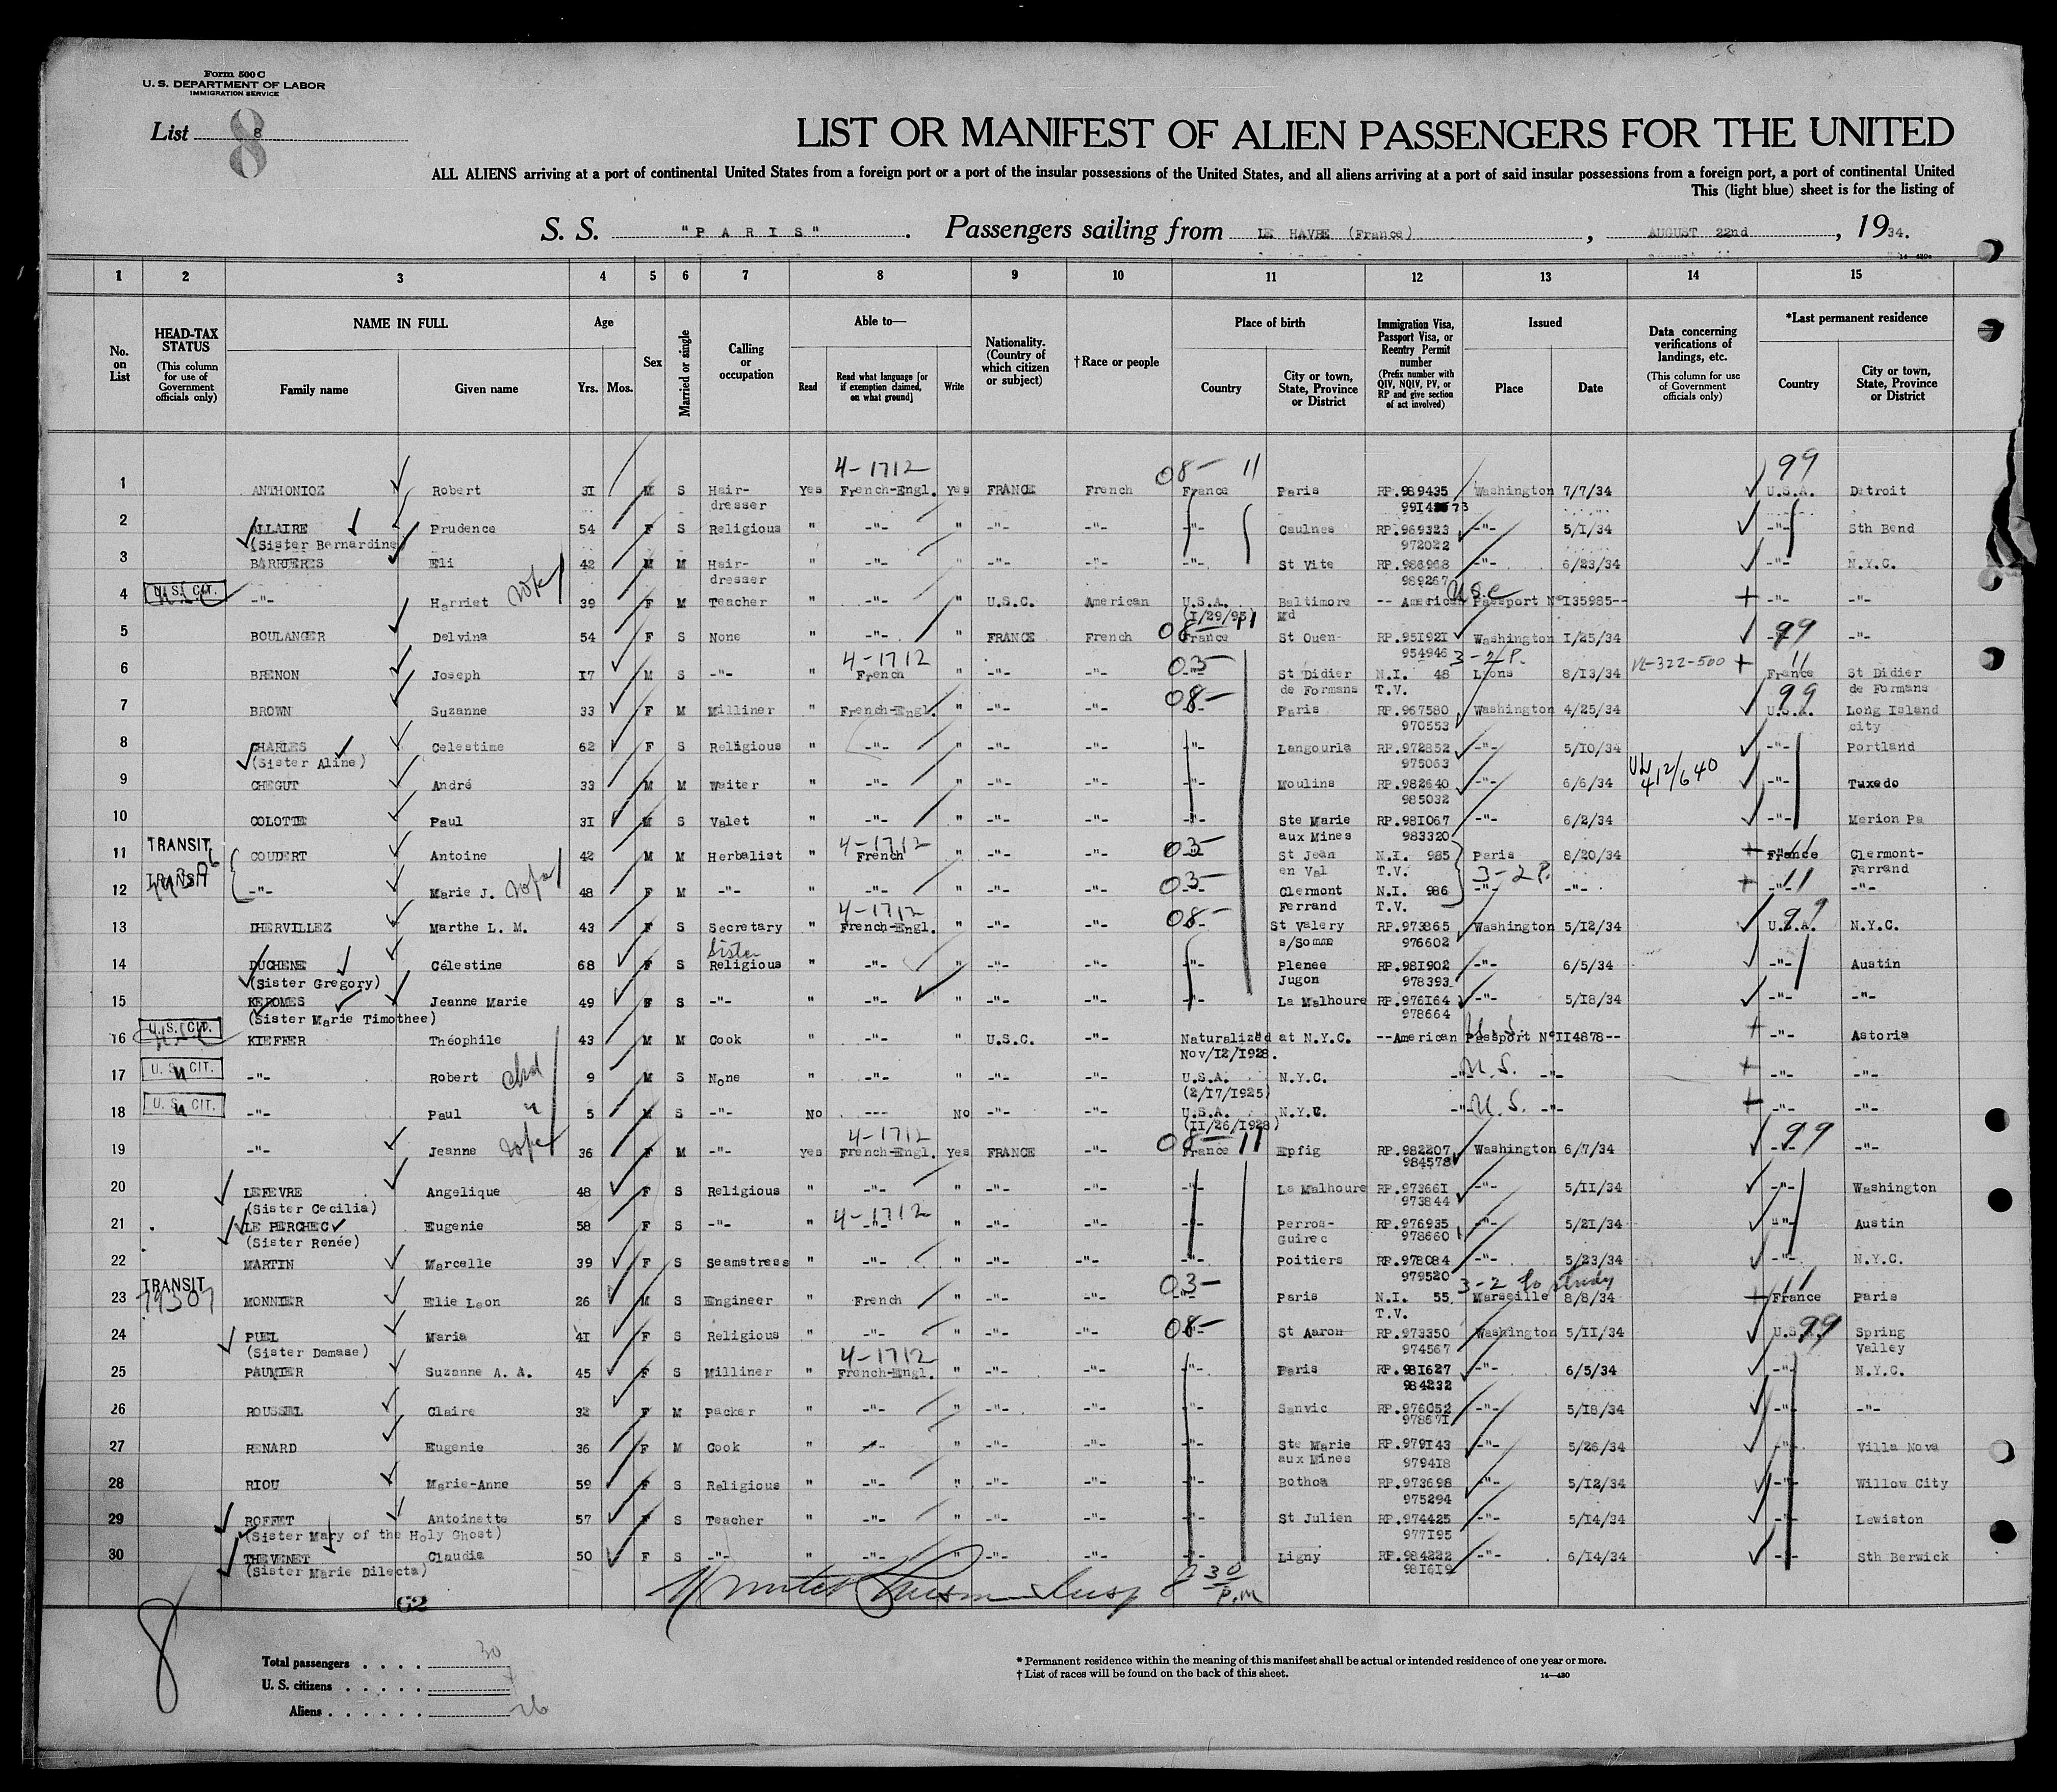 Form 500 C
U. S. DEPARTMENT OF LABOR
IMMIGRATION SERVICE
List 8
8
LIST OR MANIFEST OF ALIEN PASSENGERS FOR THE UNITED
ALL ALIENS arriving at a port of continental United States from a foreign port or a port of the insular possessions of the United States, and all aliens arriving at a port of said insular possessions from a foreign port, a port of continental United
This (light blue) sheet is for the listing of
S. S. "P A R I S". Passengers sailing from LE HAVRE (France), AUGUST 22nd, 1934.
1 2 3 4 5 6 7 8 9 10 11 12 13 14 15
No. on List
HEAD-TAX STATUS (This column for use of Government officials only)
NAME IN FULL Family name Given name
Age Yrs. Mos.
Sex
Married or single
Calling or occupation
Able to— Read Read what language [or if exemption claimed, on what ground] Write
Nationality. (Country of which citizen or subject)
† Race or people
Place of birth Country City or town, State, Province or District
Immigration Visa, Passport Visa, or Reentry Permit number (Prefix number with QIV, NQIV, PV, or RP and give section of act involved)
Issued Place Date
Data concerning verifications of landings, etc. (This column for use of Government officials only)
*Last permanent residence Country City or town, State, Province or District
4-1712 08- 11 99
1 ANTHONIOZ Robert 31 M S Hair- Yes French-Engl. Yes FRANCE French France Paris RP.989435 Washington 7/7/34 U.S.A. Detroit
dresser
2 ALLAIRE Prudence 54 F S Religious " -"- " -"- -"- -"- Caulnes RP.969323 -"- 5/1/34 -"- Sth Bend
(Sister Bernardine) 972022
3 BARRIERES Eli 42 M M Hair- " -"- " -"- -"- -"- St Vite RP.986968 -"- 6/23/34 -"- N.Y.C.
dresser 989267
4 U.S. CIT. -"- Harriet 39 F M Teacher " -"- " U.S.C. American U.S.A. Baltimore -- American Passport N°135985-- -"- -"-
(1/29/95) Md
5 BOULANGER Delvina 54 F S None " -"- " FRANCE French France St Ouen RP.951921 Washington 1/25/34 99 -"-
954946 3-2 P.
4-1712 03- 11
6 BRENON Joseph 17 M S -"- " French " -"- -"- St Didier N.I. 48 Lyons 8/13/34 France St Didier
de Formans T.V. de Formans
08- 99
7 BROWN Suzanne 33 F M Milliner " French-Engl. " -"- -"- -"- Paris RP.967580 Washington 4/25/34 U.S.A. Long Island
970553 city
8 CHARLES Celestine 62 F S Religious " -"- " -"- -"- -"- Langourla RP.972852 -"- 5/10/34 -"- Portland
(Sister Aline) 975063
9 CHEGUT André 33 M M Waiter " -"- " -"- -"- -"- Moulins RP.982640 -"- 6/6/34 412/640 -"- Tuxedo
985032
10 COLOTTE Paul 31 M S Valet " -"- " -"- -"- -"- Ste Marie RP.981067 -"- 6/2/34 -"- Merion Pa
aux Mines 983320
TRANSIT 4-1712 03- 11
11 COUDERT Antoine 42 M M Herbalist " French " -"- -"- -"- St Jean N.I. 985 Paris 8/20/34 France Clermont-
en Val T.V. 3-2 P. Ferrand
TRANSIT 03- 11
12 -"- Marie J. 48 F M -"- " -"- " -"- -"- Clermont N.I. 986 -"- -"- -"- -"-
Ferrand T.V.
4-1712 08- 99
13 DHERVILLEZ Marthe L. M. 43 F S Secretary " French-Engl. " -"- -"- St Valery RP.973865 Washington 5/12/34 U.S.A. N.Y.C.
s/Somme 976602
Sister
14 DUCHENE Célestine 68 F S Religious " -"- " -"- -"- -"- Plenee RP.981902 -"- 6/5/34 -"- Austin
(Sister Gregory) Jugon 978393
15 KEROMES Jeanne Marie 49 F S -"- " -"- " -"- -"- -"- La Malhoure RP.976164 -"- 5/18/34 -"- -"-
(Sister Marie Timothee) 978664
16 U. S. CIT. KIEFFER Théophile 43 M M Cook " -"- " U.S.C. -"- Naturalized at N.Y.C. --American Passport N°114878-- -"- Astoria
Nov/12/1928.
17 U. S. CIT. -"- Robert 9 M S None " -"- " -"- -"- U.S.A. N.Y.C. -"- U.S. -"- -"- -"-
(2/17/1925)
18 U. S. CIT. -"- Paul 5 M S -"- No --- No -"- -"- U.S.A. N.Y.C. -"- U.S. -"- -"- -"-
(11/26/1928)
4-1712 08- 11 99
19 -"- Jeanne 36 F M -"- Yes French-Engl. Yes FRANCE -"- France Epfig RP.982207 Washington 6/7/34 -"- -"-
984578
20 LEFEVRE Angelique 48 F S Religious " -"- " -"- -"- -"- La Malhoure RP.973661 -"- 5/11/34 -"- Washington
(Sister Cecilia) 973844
4-1712
21 LE PERCHEC Eugenie 58 F S -"- " -"- " -"- -"- -"- Perros- RP.976935 -"- 5/21/34 -"- Austin
(Sister Renée) Guirec 978660
22 MARTIN Marcelle 39 F S Seamstress " -"- " -"- -"- -"- Poitiers RP.978084 -"- 5/23/34 -"- N.Y.C.
979520 3-2 to study
TRANSIT 03- 11
23 MONNIER Elie Leon 26 M S Engineer " French " -"- -"- -"- Paris N.I. 55 Marseille 8/8/34 France Paris
T.V.
08- 99
24 PUEL Maria 41 F S Religious " -"- " -"- -"- St Aaron RP.973350 Washington 5/11/34 U.S.A. Spring
(Sister Damase) 974567 Valley
4-1712
25 PAUMIER Suzanne A. A. 45 F S Milliner " French-Engl. " -"- -"- -"- Paris RP.981627 -"- 6/5/34 -"- N.Y.C.
984232
26 ROUSSEL Claire 32 F M Packer " -"- " -"- -"- -"- Sanvic RP.976052 -"- 5/18/34 -"- -"-
978671
27 RENARD Eugenie 36 F M Cook " -"- " -"- -"- -"- Ste Marie RP.979143 -"- 5/26/34 -"- Villa Nova
aux Mines 979418
28 RIOU Marie-Anne 59 F S Religious " -"- " -"- -"- -"- Bothoa RP.973698 -"- 5/12/34 -"- Willow City
975294
29 ROFFET Antoinette 57 F S Teacher " -"- " -"- -"- -"- St Julien RP.974425 -"- 5/14/34 -"- Lewiston
(Sister Mary of the Holy Ghost) 977195
30 THEVENET Claudia 50 F S -"- " -"- " -"- -"- -"- Ligny RP.984222 -"- 6/14/34 -"- Sth Berwick
(Sister Marie Dilecta) 981619
62
8
Total passengers . . . . 30
U. S. citizens . . . . .
Aliens . . . . . . 26
* Permanent residence within the meaning of this manifest shall be actual or intended residence of one year or more.
† List of races will be found on the back of this sheet. 14—430